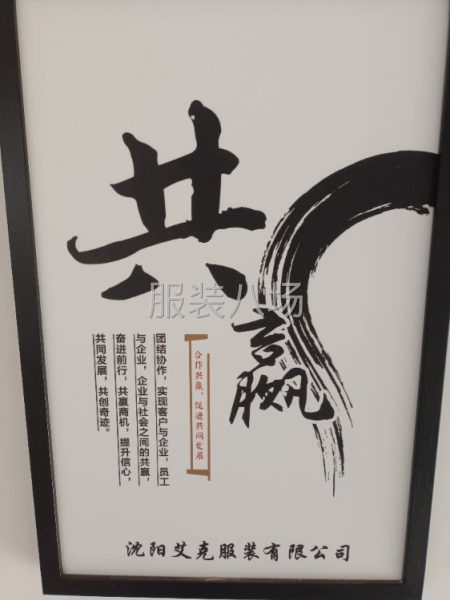 共
赢
合作共赢，促进共同发展
团结协作，实现客户与企业，员工
与企业，企业与社会之间的共赢，
奋进前行，共赢商机，提升信心，
共同发展，共创奇迹。
沈阳艾克服装有限公司
服装八场